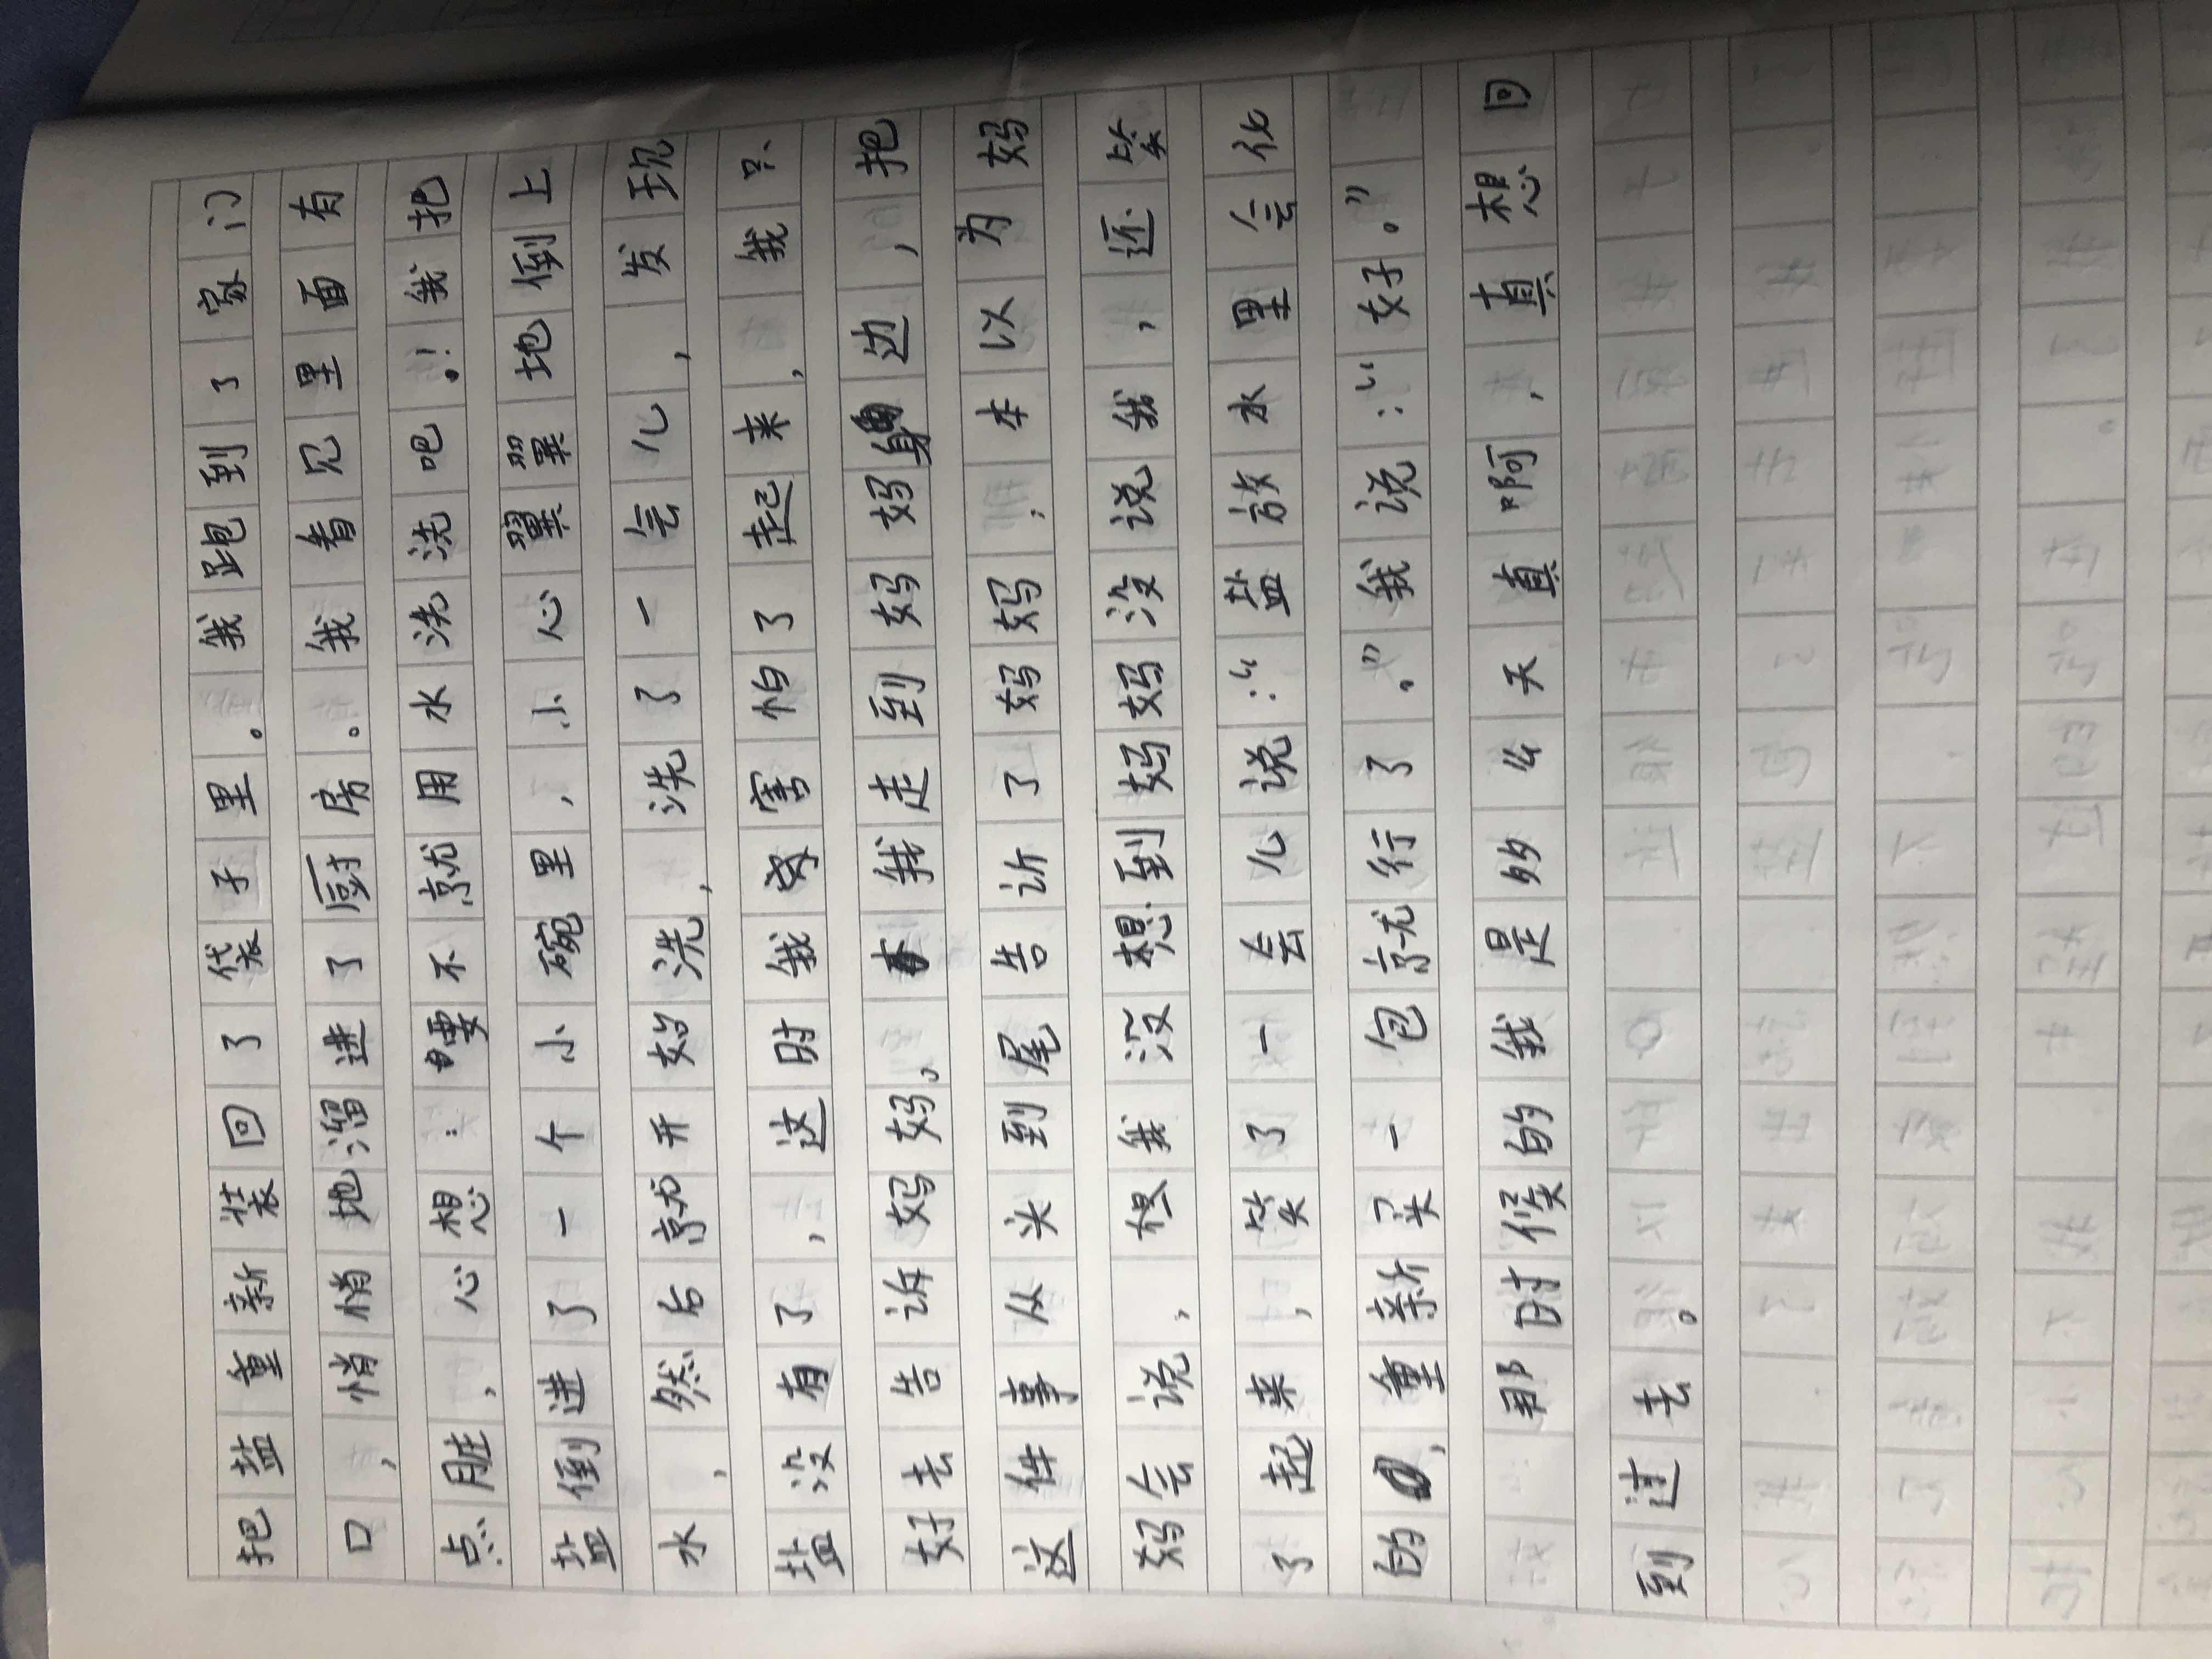 把盐重新装回了袋子里。我跑到了家门
口，悄悄地溜进了厨房。我看见里面有
点脏，心想：要不就用水洗洗吧。！我把
盐倒进了一个小碗里，小心翼翼地倒上
水，然后就开始洗，洗了一会儿，发现
盐没有了，这时我好害怕了起来，我只
好去告诉妈妈。我走到妈妈身边，把
这件事从头到尾告诉了妈妈，本以为妈
妈会说，但我没想到妈妈没说我，还笑
了起来，笑了一会儿说：“盐放水里会化
的，重新买一包就行了。”我说：“好。”
那时候的我是多么天真啊，真想回
到过去。